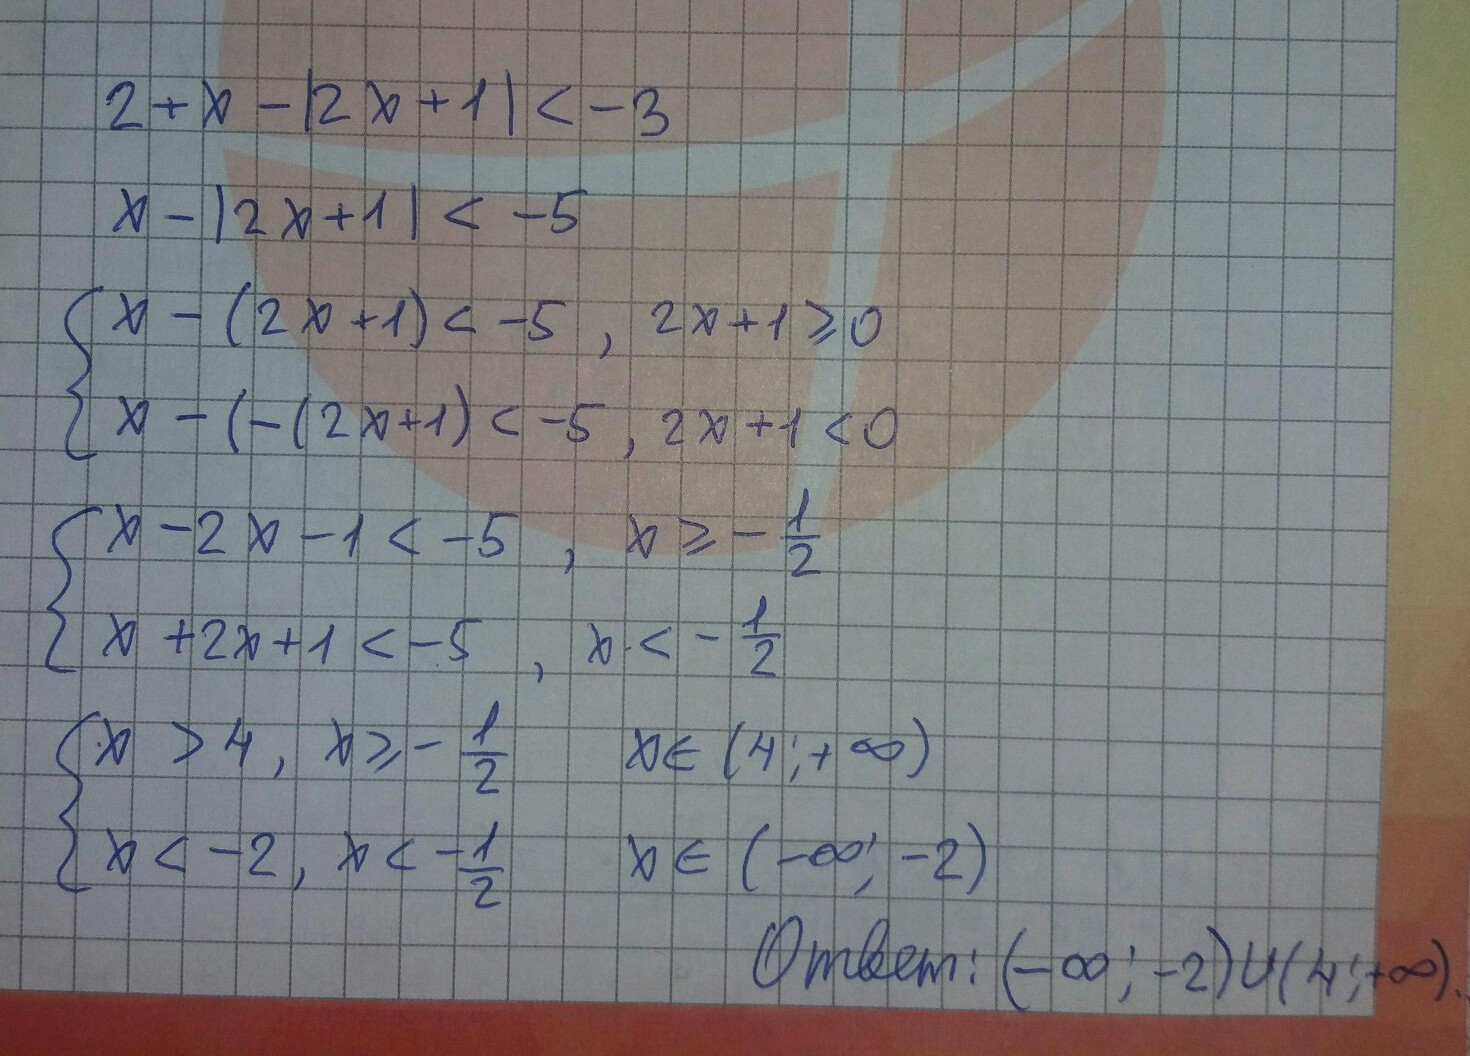 2 + x - |2x + 1| < -3
x - |2x + 1| < -5
{ x - (2x + 1) < -5 , 2x + 1 ≥ 0
x - (-(2x + 1) < -5 , 2x + 1 < 0
{ x - 2x - 1 < -5 , x ≥ - 1/2
x + 2x + 1 < -5 , x < - 1/2
{ x > 4 , x ≥ - 1/2 x ∈ (4 ; + ∞)
x < -2 , x < - 1/2 x ∈ (-∞ ; -2)
Ответ: (-∞ ; -2) ∪ (4 ; +∞).